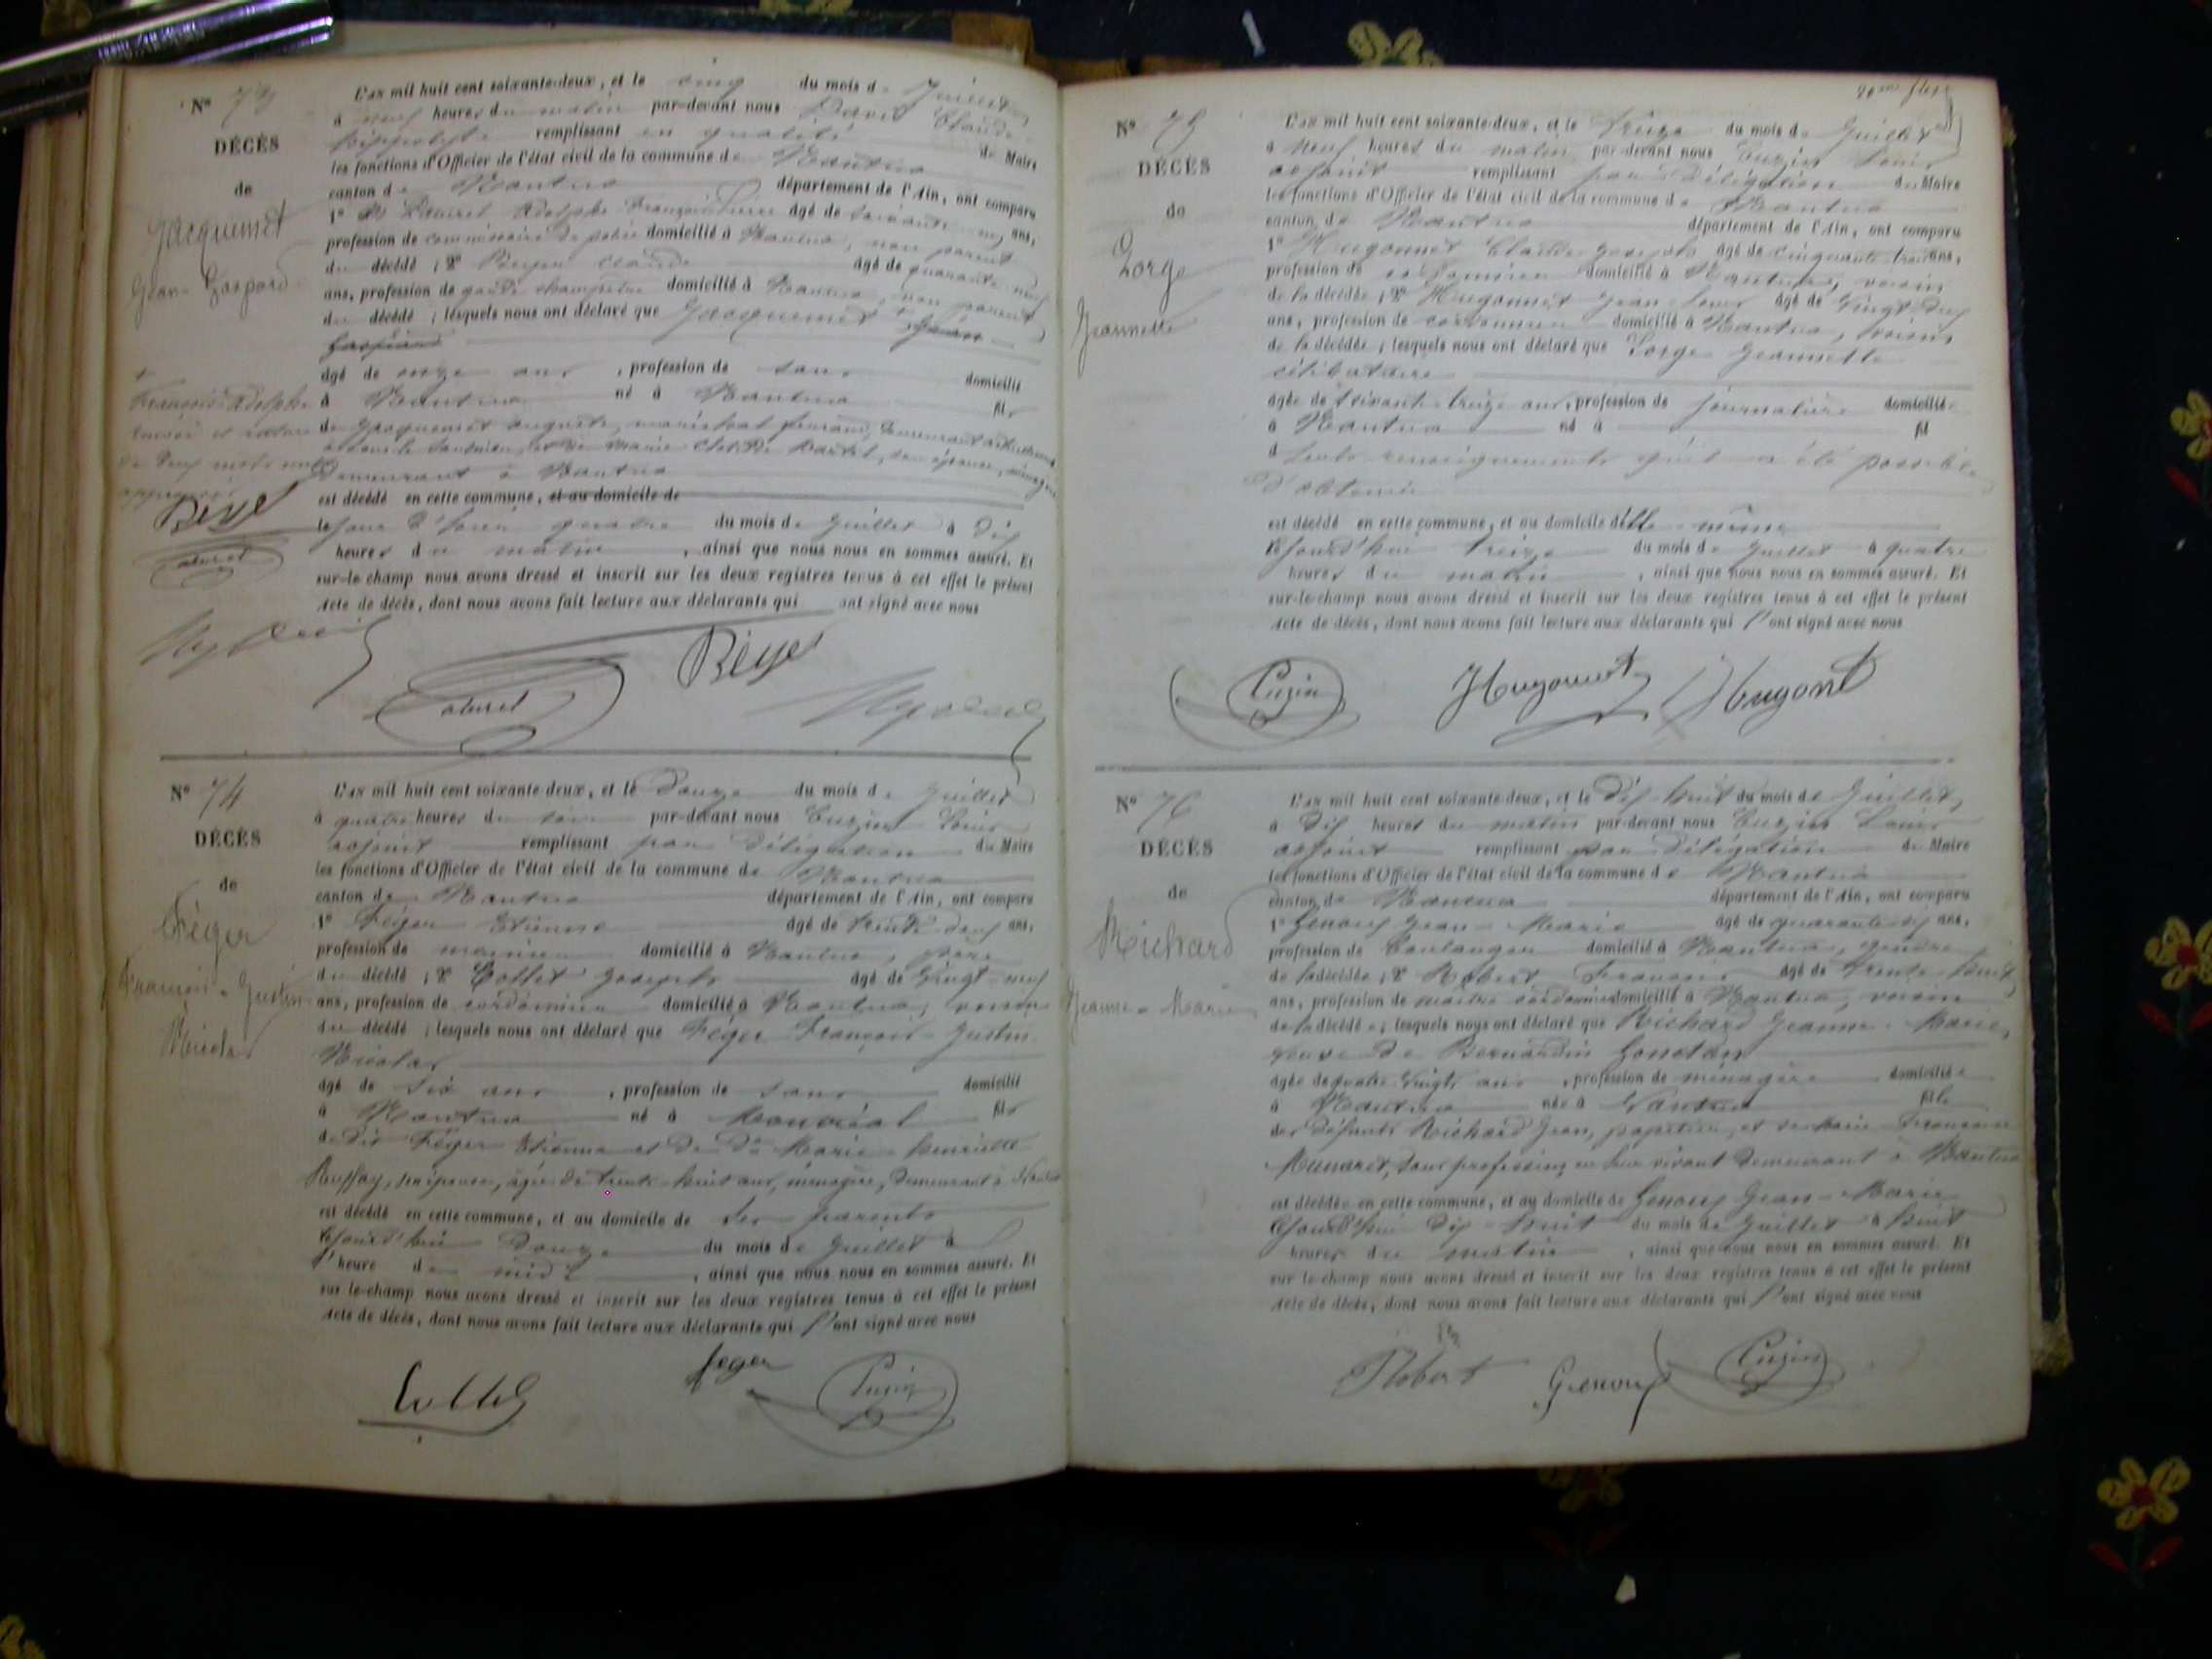 N° 73
DÉCÈS
de
Jacquemet
Jean-Gaspard
L'an mil huit cent soixante-deux, et le cinq du mois de Juillet
à neuf heures du matin par-devant nous David Claude
hippolyte remplissant en qualité de Maire
les fonctions d'Officier de l'état civil de la commune de Nantua
canton de Nantua département de l'Ain, ont comparu
1° Adolphe François âgé de soixante ans,
profession de commissaire de police domicilié à Nantua, non parent
du décédé ; 2° Beyer Claude âgé de quarante neuf
ans, profession de garde champêtre domicilié à Nantua, non parent
du décédé ; lesquels nous ont déclaré que Jacquemet + Jean
Gaspard
âgé de onze ans, profession de sans domicilié
à Nantua né à Nantua fils
de Jacquemet auguste, maréchal ferrant, demeurant
et de marie Clotilde, son épouse,
demeurant à Nantua
est décédé en cette commune, et au domicile de
le jour d'hier quatre du mois de Juillet à dix
heures du matin, ainsi que nous nous en sommes assuré. Et
sur-le-champ nous avons dressé et inscrit sur les deux registres tenus à cet effet le présent
Acte de décès, dont nous avons fait lecture aux déclarants qui ont signé avec nous
+
François Adolphe
deux mots nuls
Beye
Beye
N° 74
DÉCÈS
de
Féger
François-Justin
Nicolas
L'an mil huit cent soixante-deux, et le Douze du mois de Juillet
à quatre heures du soir par-devant nous Cuzin Louis
adjoint remplissant par Délégation du Maire
les fonctions d'Officier de l'état civil de la commune de Nantua
canton de Nantua département de l'Ain, ont comparu
1° Féger Etienne âgé de trente deux ans,
profession de domicilié à Nantua, père
du décédé ; 2° Collet Joseph âgé de vingt-neuf
ans, profession de cordonnier domicilié à Nantua, voisin
du décédé ; lesquels nous ont déclaré que Féger François-Justin
Nicolas
âgé de six ans, profession de sans domicilié
à Nantua né à Montréal fils
de dit Féger Etienne et de De Marie-henriette
son épouse, âgée de trente-huit ans, ménagère, demeurant à Nantua
est décédé en cette commune, et au domicile de ses parents
Cejourd'hui Douze du mois de Juillet à
l'heure de midi, ainsi que nous nous en sommes assuré. Et
sur-le-champ nous avons dressé et inscrit sur les deux registres tenus à cet effet le présent
Acte de décès, dont nous avons fait lecture aux déclarants qui l'ont signé avec nous
Collet
feger
Cuzin
N° 75
DÉCÈS
de
Lorge
Jeannette
L'an mil huit cent soixante-deux, et le Treize du mois de Juillet
à neuf heures du matin par-devant nous Cuzin Louis
adjoint remplissant par Délégation du Maire
les fonctions d'Officier de l'état civil de la commune de Nantua
canton de Nantua département de l'Ain, ont comparu
1° Hugonnet Claude Joseph âgé de cinquante-trois ans,
profession de domicilié à Nantua, voisin
de la décédée ; 2° Hugonnet Jean-Louis âgé de Vingt-deux
ans, profession de cordonnier domicilié à Nantua, voisin
de la décédée ; lesquels nous ont déclaré que Lorge Jeannette
célibataire
âgée de soixante-treize ans, profession de journalière domiciliée
à Nantua né à fil
d seuls renseignements qu'il a été possible
d'obtenir
est décédé en cette commune, et au domicile d'elle-même
Cejourd'hui treize du mois de Juillet à quatre
heures du matin, ainsi que nous nous en sommes assuré. Et
sur-le-champ nous avons dressé et inscrit sur les deux registres tenus à cet effet le présent
Acte de décès, dont nous avons fait lecture aux déclarants qui l'ont signé avec nous
Cuzin
Hugonnet
Hugonet
N° 76
DÉCÈS
de
Richard
Jeanne-Marie
L'an mil huit cent soixante-deux, et le Dix-huit du mois de Juillet,
à Dix heures du matin par-devant nous Cuzin Louis
adjoint remplissant par Délégation du Maire
les fonctions d'Officier de l'état civil de la commune de Nantua
canton de Nantua département de l'Ain, ont comparu
1° Genoux Jean-Marie âgé de quarante-dix ans,
profession de boulanger domicilié à Nantua, gendre
de la décédée ; 2° Robert François âgé de trente-huit
ans, profession de maître cordonnier domicilié à Nantua, voisin
de la décédée ; lesquels nous ont déclaré que Richard Jeanne-Marie,
veuve de Bernardin
âgée de quatre-vingts ans, profession de ménagère domiciliée
à Nantua née à Nantua fille
des défunts Richard Jean, et de Marie Françoise
sans profession, en leur vivant demeurant à Nantua
est décédée en cette commune, et au domicile de Genoux Jean-Marie
Cejourd'hui dix-huit du mois de Juillet à huit
heures du matin, ainsi que nous nous en sommes assuré. Et
sur-le-champ nous avons dressé et inscrit sur les deux registres tenus à cet effet le présent
Acte de décès, dont nous avons fait lecture aux déclarants qui l'ont signé avec nous
Robert
Genoux
Cuzin